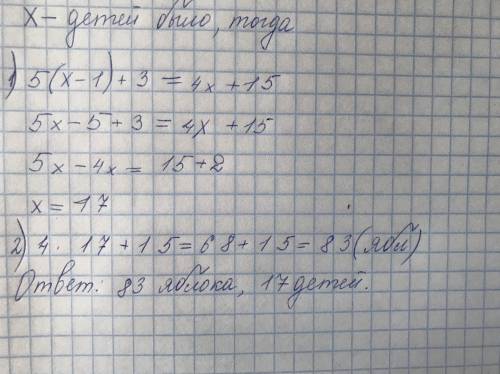 X – детей было, тогда
1) 5(x-1)+3 = 4x +15
5x-5+3 = 4x +15
5x-4x = 15+2
x = 17
2) 4 · 17+15=68+15=83(ябл)
Ответ: 83 яблока, 17детей.